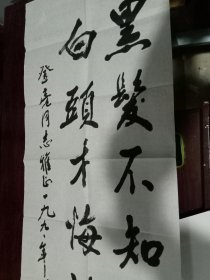 黑髮不知
白頭才悔
登亮同志雅正一九九八年